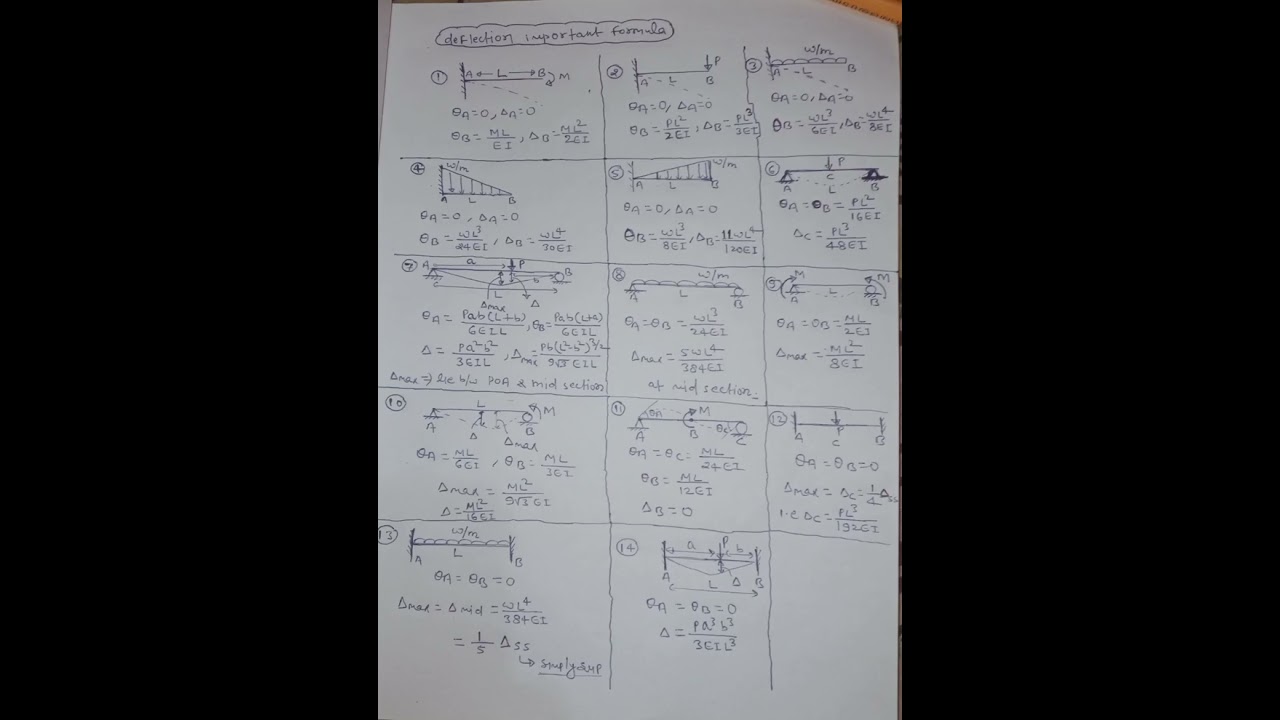 deflection important formula
① A L B M
θA=0, ΔA=0
θB=ML/EI, ΔB=ML²/2EI
② P
A L B
θA=0, ΔA=0
θB=PL²/2EI, ΔB=PL³/3EI
③ w/m
A L B
θA=0, ΔA=0
θB=wL³/6EI, ΔB=wL⁴/8EI
④ w/m
A L B
θA=0, ΔA=0
θB=wL³/24EI, ΔB=wL⁴/30EI
⑤ w/m
A L B
θA=0, ΔA=0
θB=wL³/8EI, ΔB=11wL⁴/120EI
⑥ P
A C B
L
θA=θB=PL²/16EI
ΔC=PL³/48EI
⑦ A a P b B
L
Δmax Δ
θA=Pab(L+b)/6EIL, θB=Pab(L+a)/6EIL
Δ=Pa²b²/3EIL, Δmax=Pb(L²-b²)^3/2/9√3EIL
Δmax=> lie b/w POA & mid section
⑧ w/m
A L B
θA=θB=wL³/24EI
Δmax=5wL⁴/384EI
at mid section
⑨ M M
A L B
θA=θB=ML/2EI
Δmax=ML²/8EI
⑩ L M
A B
Δ Δmax
θA=ML/6EI, θB=ML/3EI
Δmax=ML²/9√3EI
Δ=ML²/16EI
⑪ θA M
A B θC C
θA=θC=ML/24EI
θB=ML/12EI
ΔB=0
⑫ P
A C B
θA=θB=0
Δmax=ΔC=1/4 Δss
i.e ΔC=PL³/192EI
⑬ w/m
A L B
θA=θB=0
Δmax=Δmid=wL⁴/384EI
=1/5 Δss
↳ simply sup
⑭ a P b
A L Δ B
θA=θB=0
Δ=Pa³b³/3EIL³